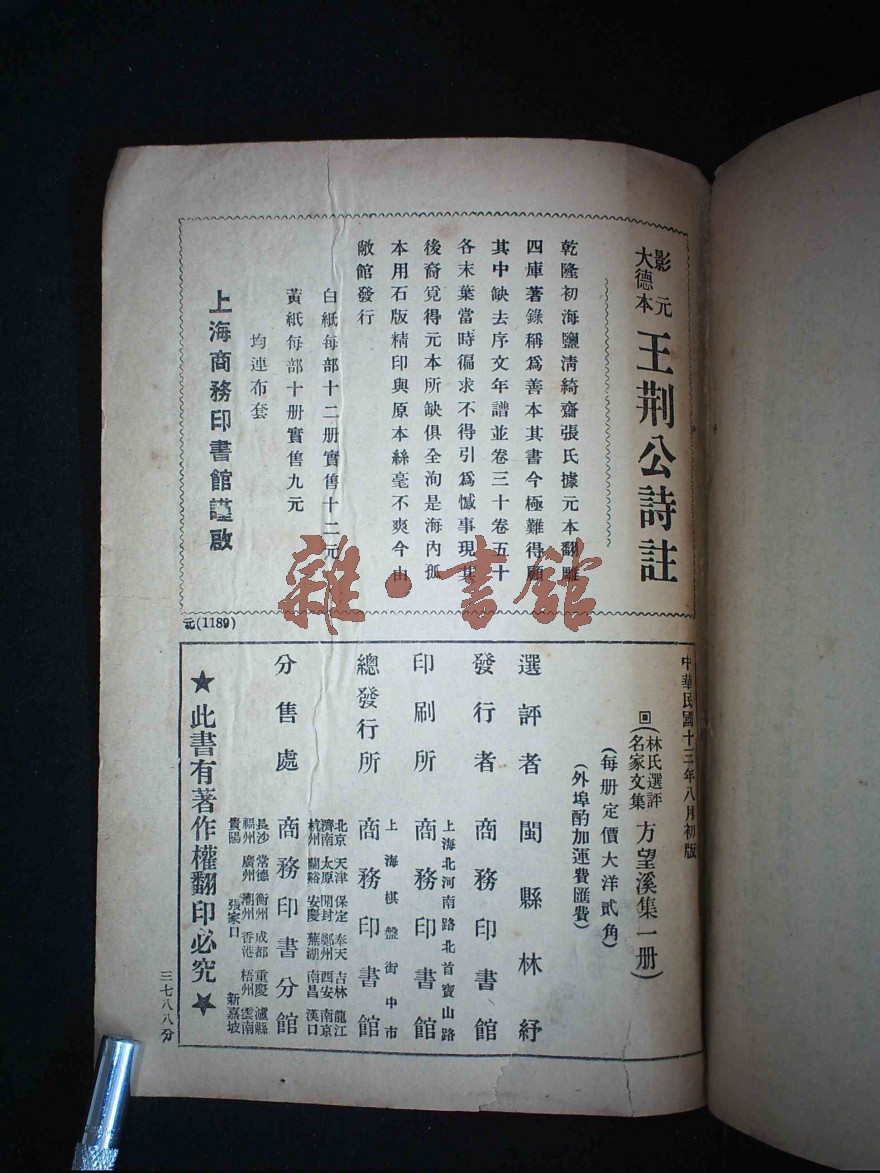 影元
大德本
王荆公詩註
乾隆初海鹽淸綺齋張氏據元本翻雕
四庫著錄稱爲善本其書今極難得願
其中缺去序文年譜並卷三十卷五十
各末葉當時徧求不得引爲憾事現其
後裔覓得元本所缺俱全洵是海內孤
本用石版精印與原本絲毫不爽今由
敝館發行
白紙每部十二册實售十二元
黃紙每部十册實售九元
均連布套
上海商務印書館謹啟
元(1189)
中華民國十三年八月初版
回(林氏選評名家文集 方望溪集一册)
(每册定價大洋貳角)
(外埠酌加運費匯費)
選評者 閩縣林紓
發行者 商務印書館
上海北河南路北首寶山路
印刷所 商務印書館
上海棋盤街中市
總發行所 商務印書館
北京 天津 保定 奉天 吉林 龍江
濟南 太原 開封 鄭州 西安 南京
杭州 蘭谿 安慶 蕪湖 南昌 漢口
分售處 商務印書分館
長沙 常德 衡州 成都 重慶 瀘縣
福州 廣州 潮州 香港 梧州 雲南
貴陽 張家口 新嘉坡
★此書有著作權翻印必究★
三七八八分
雜·書館